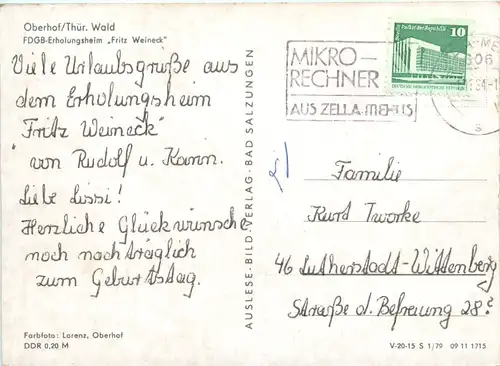 Oberhof/Thür. Wald
FDGB-Erholungsheim „Fritz Weineck"
Viele Urlaubsgrüße aus
dem Erholungsheim
"Fritz Weineck"
von Rudolf u. Hann.
Liebe Lissi!
Herzliche Glückwünsche
noch nachträglich
zum Geburtstag.
Farbfoto: Lorenz, Oberhof
DDR 0,20 M
AUSLESE-BILD-VERLAG-BAD SALZUNGEN
MIKRO-
RECHNER
AUS ZELLA-MEHLIS
10
Familie
Kurt Tworke
46 Lutherstadt-Wittenberg
Straße d. Befreiung 28?
V-20-15 S 1/79 09 11 1715